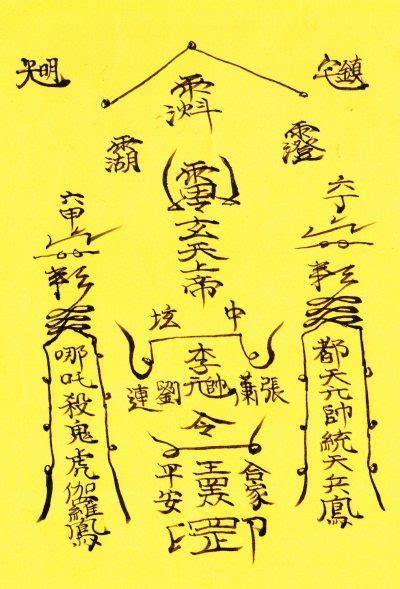 鎮宅
明光
六丁
六甲
玄天上帝
中坛
張蕭劉連
李元帥
令
合家
平安
都天元帥統天兵鳳
哪吒殺鬼虎伽羅鳳